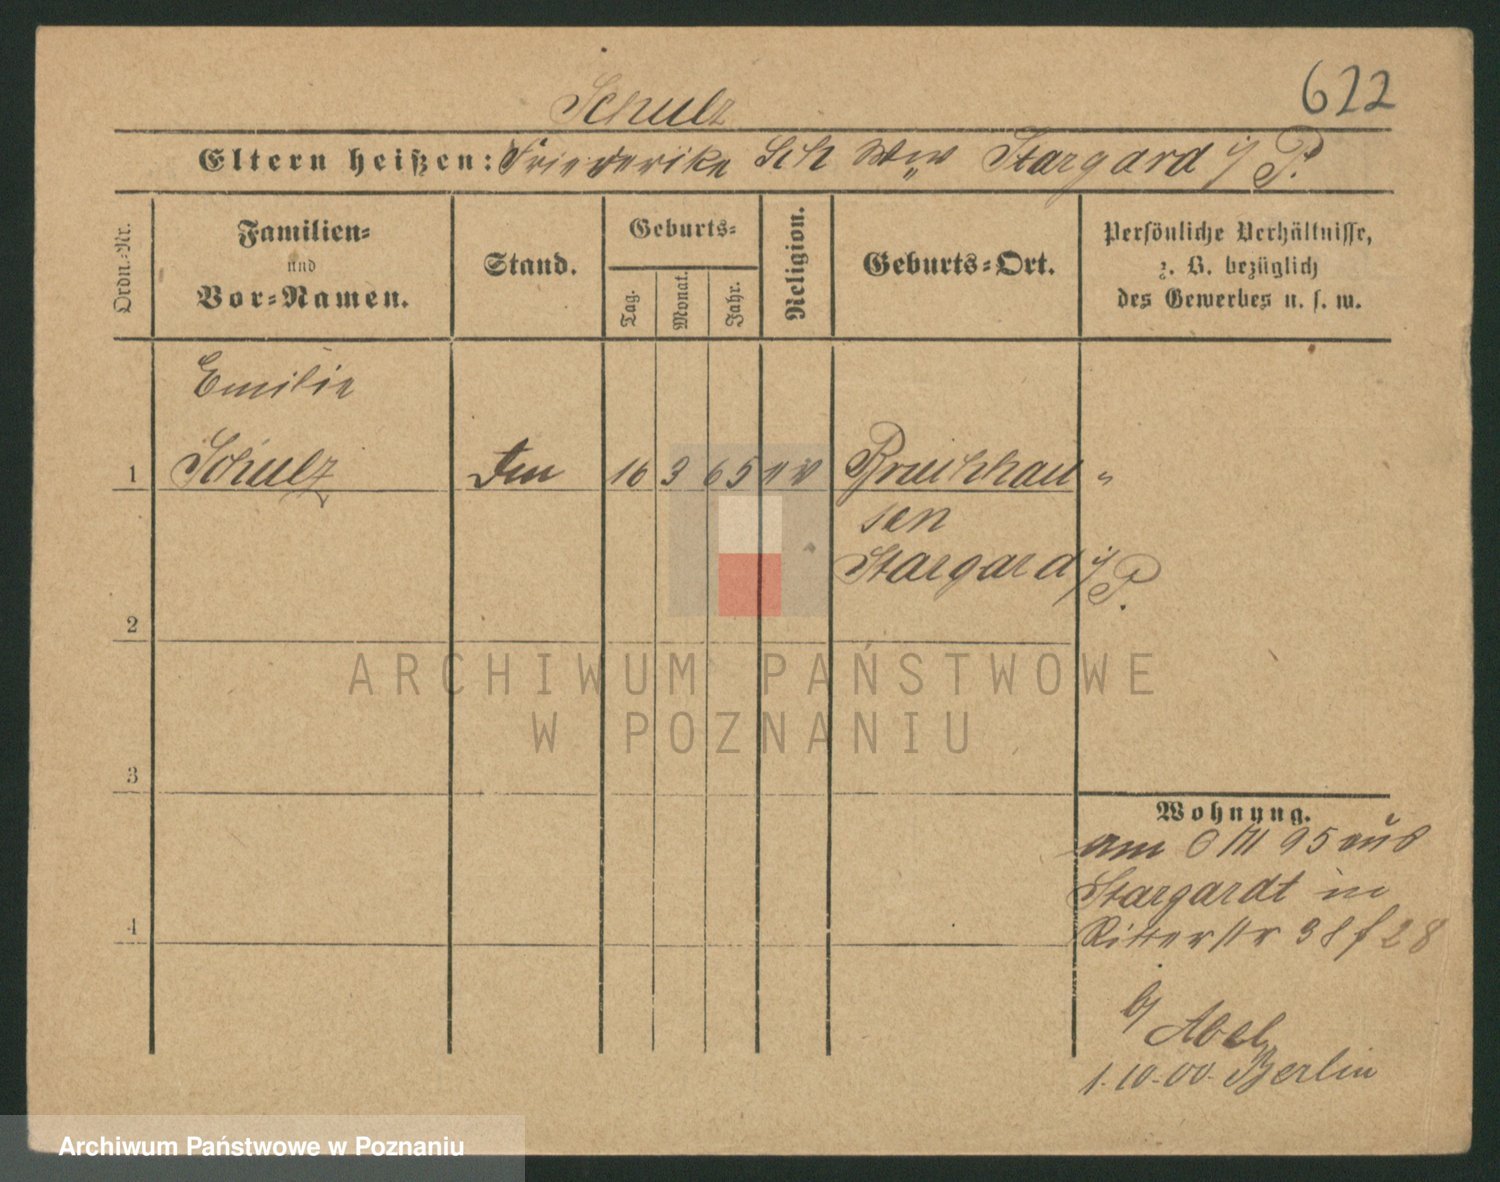 622
Schulz
Eltern heißen: Friederike Sch Ww Stargard i/P.
Ordn.-Nr.
Familien-
und
Vor-Namen.
Stand.
Geburts-
Tag.
Monat.
Jahr.
Religion.
Geburts-Ort.
Persönliche Verhältnisse,
z. B. bezüglich
des Gewerbes u. s. w.
Emilie
1 Schulz 16 3 65 ev Bruchhau "
sen
Stargard i/P.
2
ARCHIWUM PAŃSTWOWE
W POZNANIU
3
Wohnung.
am 6/III 95 aus
Stargardt in
Ritterstr 38 f 28
4
b/ Abel
1.10.00. Berlin
Archiwum Państwowe w Poznaniu